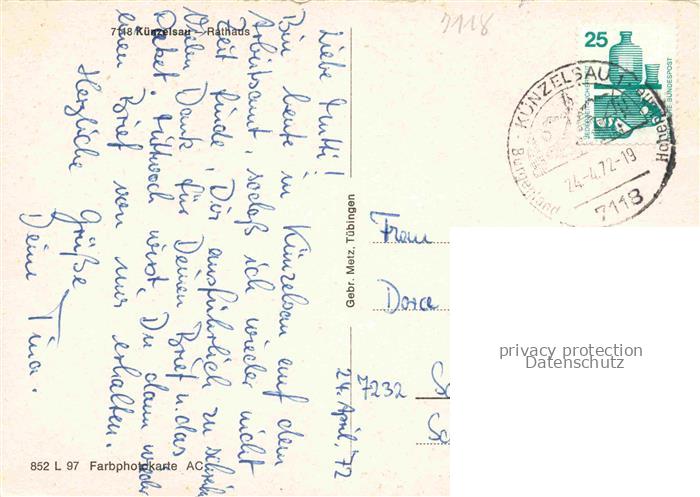 7118
7118 Künzelsau – Rathaus
24. April 72
Liebe Mutti!
Bin heute in Künzelsau auf dem
Arbeitsamt, sodaß ich wieder nicht
Zeit finde, Dir ausführlich zu schreiben.
Vielen Dank für Deinen Brief u. das
Paket. Mittwoch wirst Du dann wieder
einen Brief von mir erhalten.
Herzliche Grüße
Deine Tina.
852 L 97 Farbphotokarte AC
Gebr. Metz, Tübingen
25
DEUTSCHE BUNDESPOST
KÜNZELSAU
Burgenland Hohenlohe
24.-4.72-19
7118
Frau
Dora
7232
privacy protection
Datenschutz